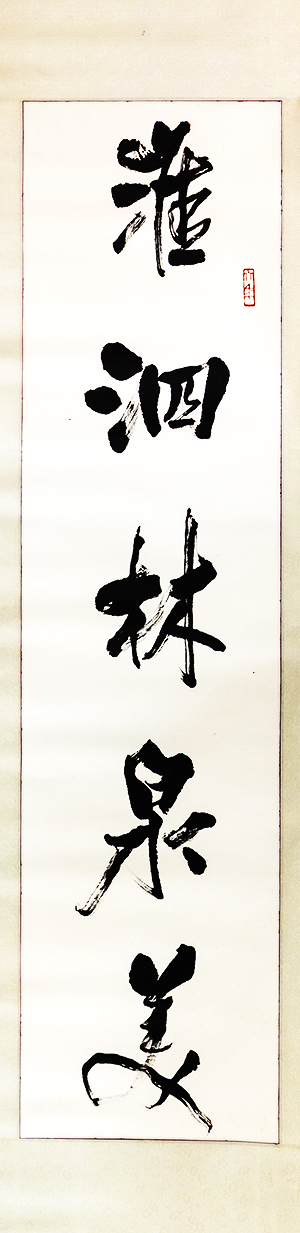 淮泗林泉美